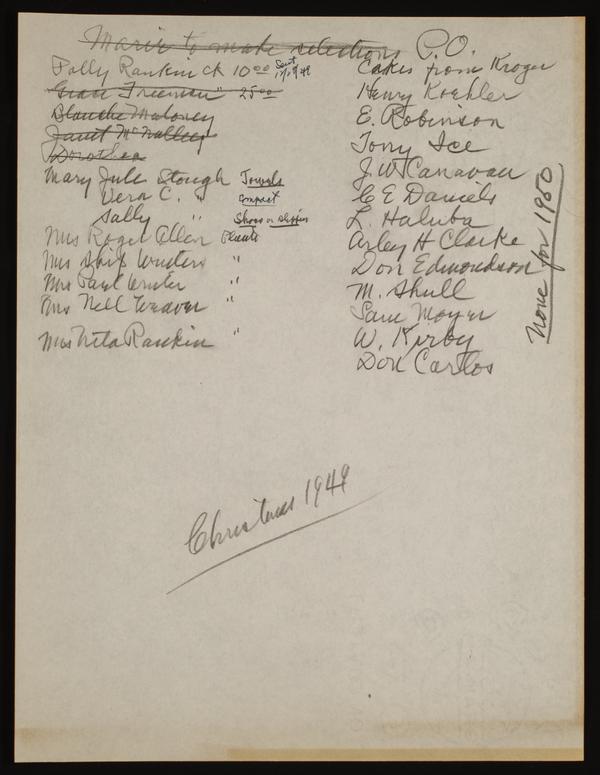 Marie to make selections
Polly Rankin ck 10.00 Sent
Grace Freeman " 25.00
Blanche Maloney
Janet McNalley
Dorothea
Mary Jule Stough Towels
Vera C. " compact
Sally " Shoes or slippers
Mrs Roger Allen Plants
Mrs Skip Winters "
Mrs Paul Winter "
Mrs Nell Weaver "
Mrs Nita Rankin "
P.O.
Cakes from Kroger
Henry Koehler
E. Robinson
Tony Ice
J.W. Canavan
C E Daniels
L. Haluba
Arley H Clarke
Don Edmondson
M. Shull
Sam Moyer
W. Kirby
Don Cartlos
none for 1950
Christmas 1949